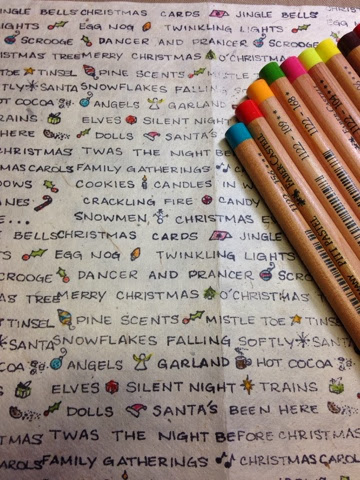 JINGLE BELLS CHRISTMAS CARDS JINGLE BELLS
LIGHTS EGG NOG TWINKLING LIGHTS
SCROOGE DANCER AND PRANCER SCROOGE
CHRISTMAS TREE MERRY CHRISTMAS O' CHRISTMAS
TOE TINSEL PINE SCENTS MISTLE TOE
SOFTLY SANTA SNOWFLAKES FALLING
HOT COCOA ANGELS GARLAND
TRAINS ELVES SILENT NIGHT
HERE DOLLS SANTA'S
CHRISTMAS TWAS THE NIGHT BE
CAROLS FAMILY GATHERINGS
COOKIES CANDLES IN W
CRACKLING FIRE CANDY
... SNOWMEN, CHRISTMAS E
BELLS CHRISTMAS CARDS JINGLE
EGG NOG TWINKLING LIGHTS
SCROOGE DANCER AND PRANCER SCRO
TREE MERRY CHRISTMAS O' CHRISTMAS
TINSEL PINE SCENTS MISTLE TOE TINSEL
SANTA SNOWFLAKES FALLING SOFTLY SANTA
COCOA ANGELS GARLAND HOT COCOA
ELVES SILENT NIGHT TRAINS
DOLLS SANTA'S BEEN HERE
TMAS TWAS THE NIGHT BEFORE CHRISTMAS
CAROLS FAMILY GATHERINGS CHRISTMAS CAROL
1122-168
1122-109
FABER-CASTELL
PITT PASTEL